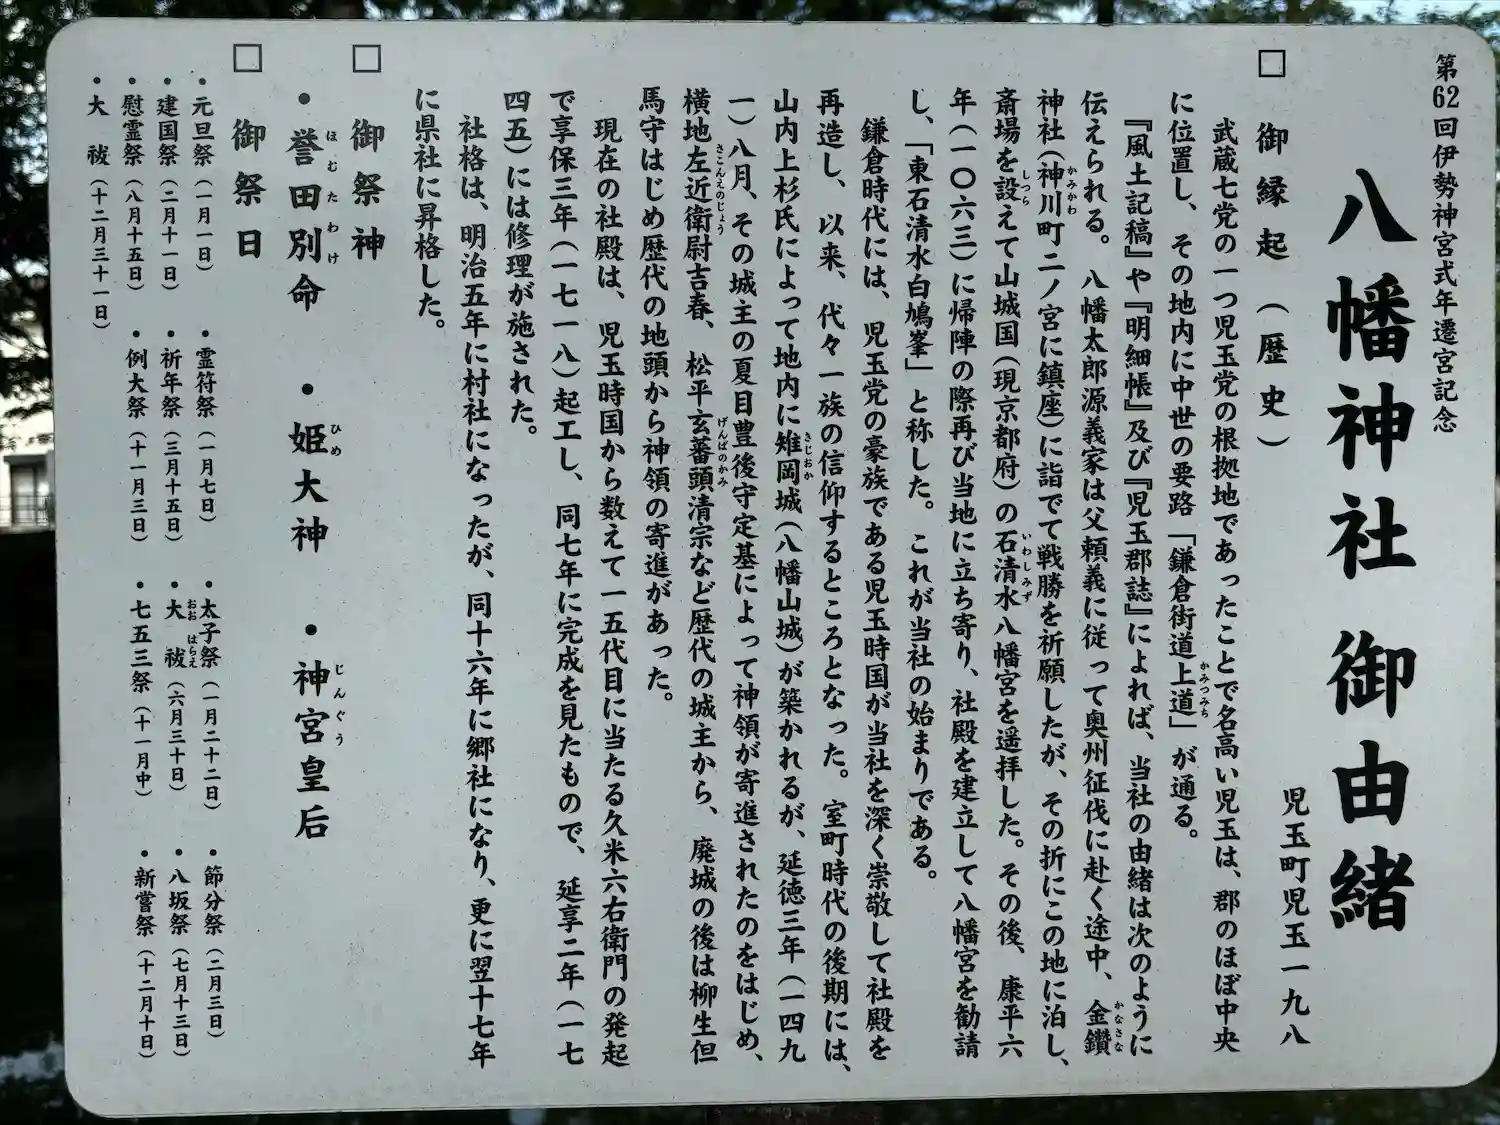 第62回伊勢神宮式年遷宮記念
八幡神社 御由緒
児玉町児玉一九八
□ 御縁起(歴史)
武蔵七党の一つ児玉党の根拠地であったことで名高い児玉は、郡のほぼ中央
に位置し、その地内に中世の要路「鎌倉街道上道」が通る。
『風土記稿』や『明細帳』及び『児玉郡誌』によれば、当社の由緒は次のように
伝えられる。八幡太郎源義家は父頼義に従って奥州征伐に赴く途中、金鑽
神社(神川町二ノ宮に鎮座)に詣でて戦勝を祈願したが、その折にこの地に泊し、
斎場を設えて山城国(現京都府)の石清水八幡宮を遥拝した。その後、康平六
年(一〇六三)に帰陣の際再び当地に立ち寄り、社殿を建立して八幡宮を勧請
し、「東石清水白鳩峯」と称した。これが当社の始まりである。
鎌倉時代には、児玉党の豪族である児玉時国が当社を深く崇敬して社殿を
再造し、以来、代々一族の信仰するところとなった。室町時代の後期には、
山内上杉氏によって地内に雉岡城(八幡山城)が築かれるが、延徳三年(一四九
一)八月、その城主の夏目豊後守定基によって神領が寄進されたのをはじめ、
横地左近衛尉吉春、松平玄蕃頭清宗など歴代の城主から、廃城の後は柳生但
馬守はじめ歴代の地頭から神領の寄進があった。
現在の社殿は、児玉時国から数えて一五代目に当たる久米六右衛門の発起
で享保三年(一七一八)起工し、同七年に完成を見たもので、延享二年(一七
四五)には修理が施された。
社格は、明治五年に村社になったが、同十六年に郷社になり、更に翌十七年
に県社に昇格した。
□ 御祭神
・誉田別命 ・姫大神 ・神宮皇后
□ 御祭日
・元旦祭(一月一日) ・霊符祭(一月七日) ・太子祭(一月二十二日) ・節分祭(二月三日)
・建国祭(二月十一日) ・祈年祭(三月十五日) ・大祓(六月三十日) ・八坂祭(七月十三日)
・慰霊祭(八月十五日) ・例大祭(十一月三日) ・七五三祭(十一月中) ・新嘗祭(十二月十日)
・大祓(十二月三十一日)